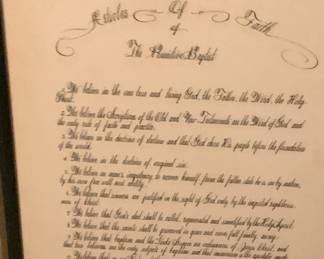 Articles Of Faith
of
The Primitive Baptist
We believe in the one true and living God, the Father, the Word, the Holy
Ghost.
We believe the Scriptures of the Old and New Testaments are the Word of God and
the only rule of faith and practice.
We believe in the doctrine of election and that God chose His people before the foundation
of the world.
We believe in the doctrine of original sin.
We believe in man's impotency to recover himself from the fallen state he is in by nature,
by his own free will and ability.
We believe that sinners are justified in the sight of God only by the imputed righteous-
ness of Christ.
We believe that God's elect shall be called, regenerated and sanctified by the Holy Spirit.
We believe that the saints shall be preserved in grace and never fall finally away.
We believe that baptism and the Lord's Supper are ordinances of Jesus Christ, and
that true believers are the only subjects of baptism and that immersion is the
We believe that